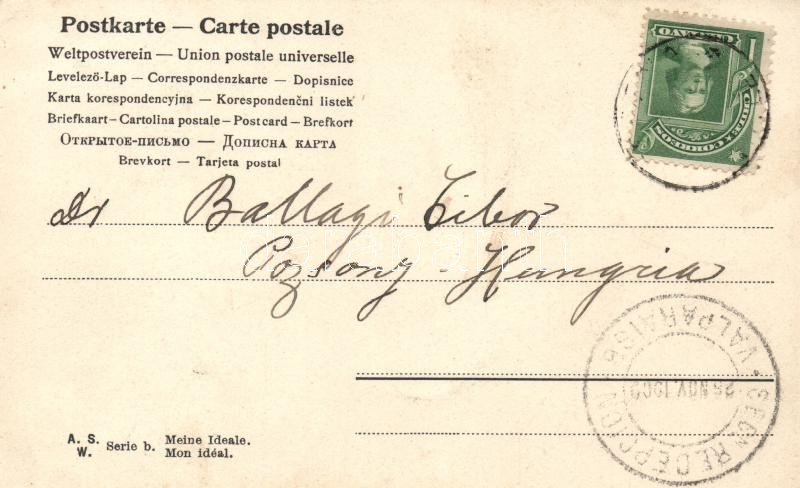 Postkarte — Carte postale
Weltpostverein — Union postale universelle
Levelező-Lap — Correspondenzkarte — Dopisnice
Karta korespondencyjna — Korespondenční listek
Briefkaart — Cartolina postale — Post card — Brefkort
Открытое-письмо — Дописна карта
Brevkort — Tarjeta postal
Dr Ballagi Tibor
Pozsony - Hungria
CHILE CORREOS
CENTAVO
VALPARAISO
RECEPCION
A. S. W. Serie b. Meine Ideale.
Mon idéal.